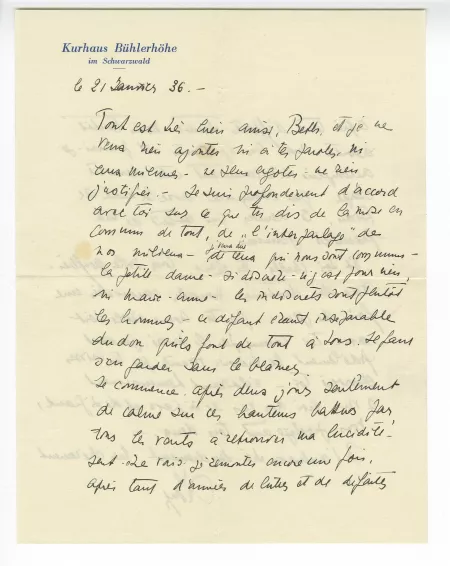 Kurhaus Bühlerhöhe
im Schwarzwald
le 21 Janvier 36. -
Tout est très bien ainsi, Betty, et je ne
veux rien ajouter ni à tes paroles, ni
aux miennes - ne rien
justifier - Je suis profondément d'accord
avec toi sur ce que tu dis de la mise en
commun de tout, de "l'interparlage" de
nos milieux - qui nous sont communs -
la petite dame - si discrète - n'y est pour rien,
ni marie-anne - les indiscrets sont plutôt
les hommes - ce défaut étant inséparable
du don qu'ils font de tout à tous. Il faut
s'en garder sans le blâmer.
Je commence après deux jours seulement
de calme sur ces hauteurs battues par
tous les vents à retrouver ma lucidité.
je remonter encore une fois,
après tant d'années de luttes et de défaites